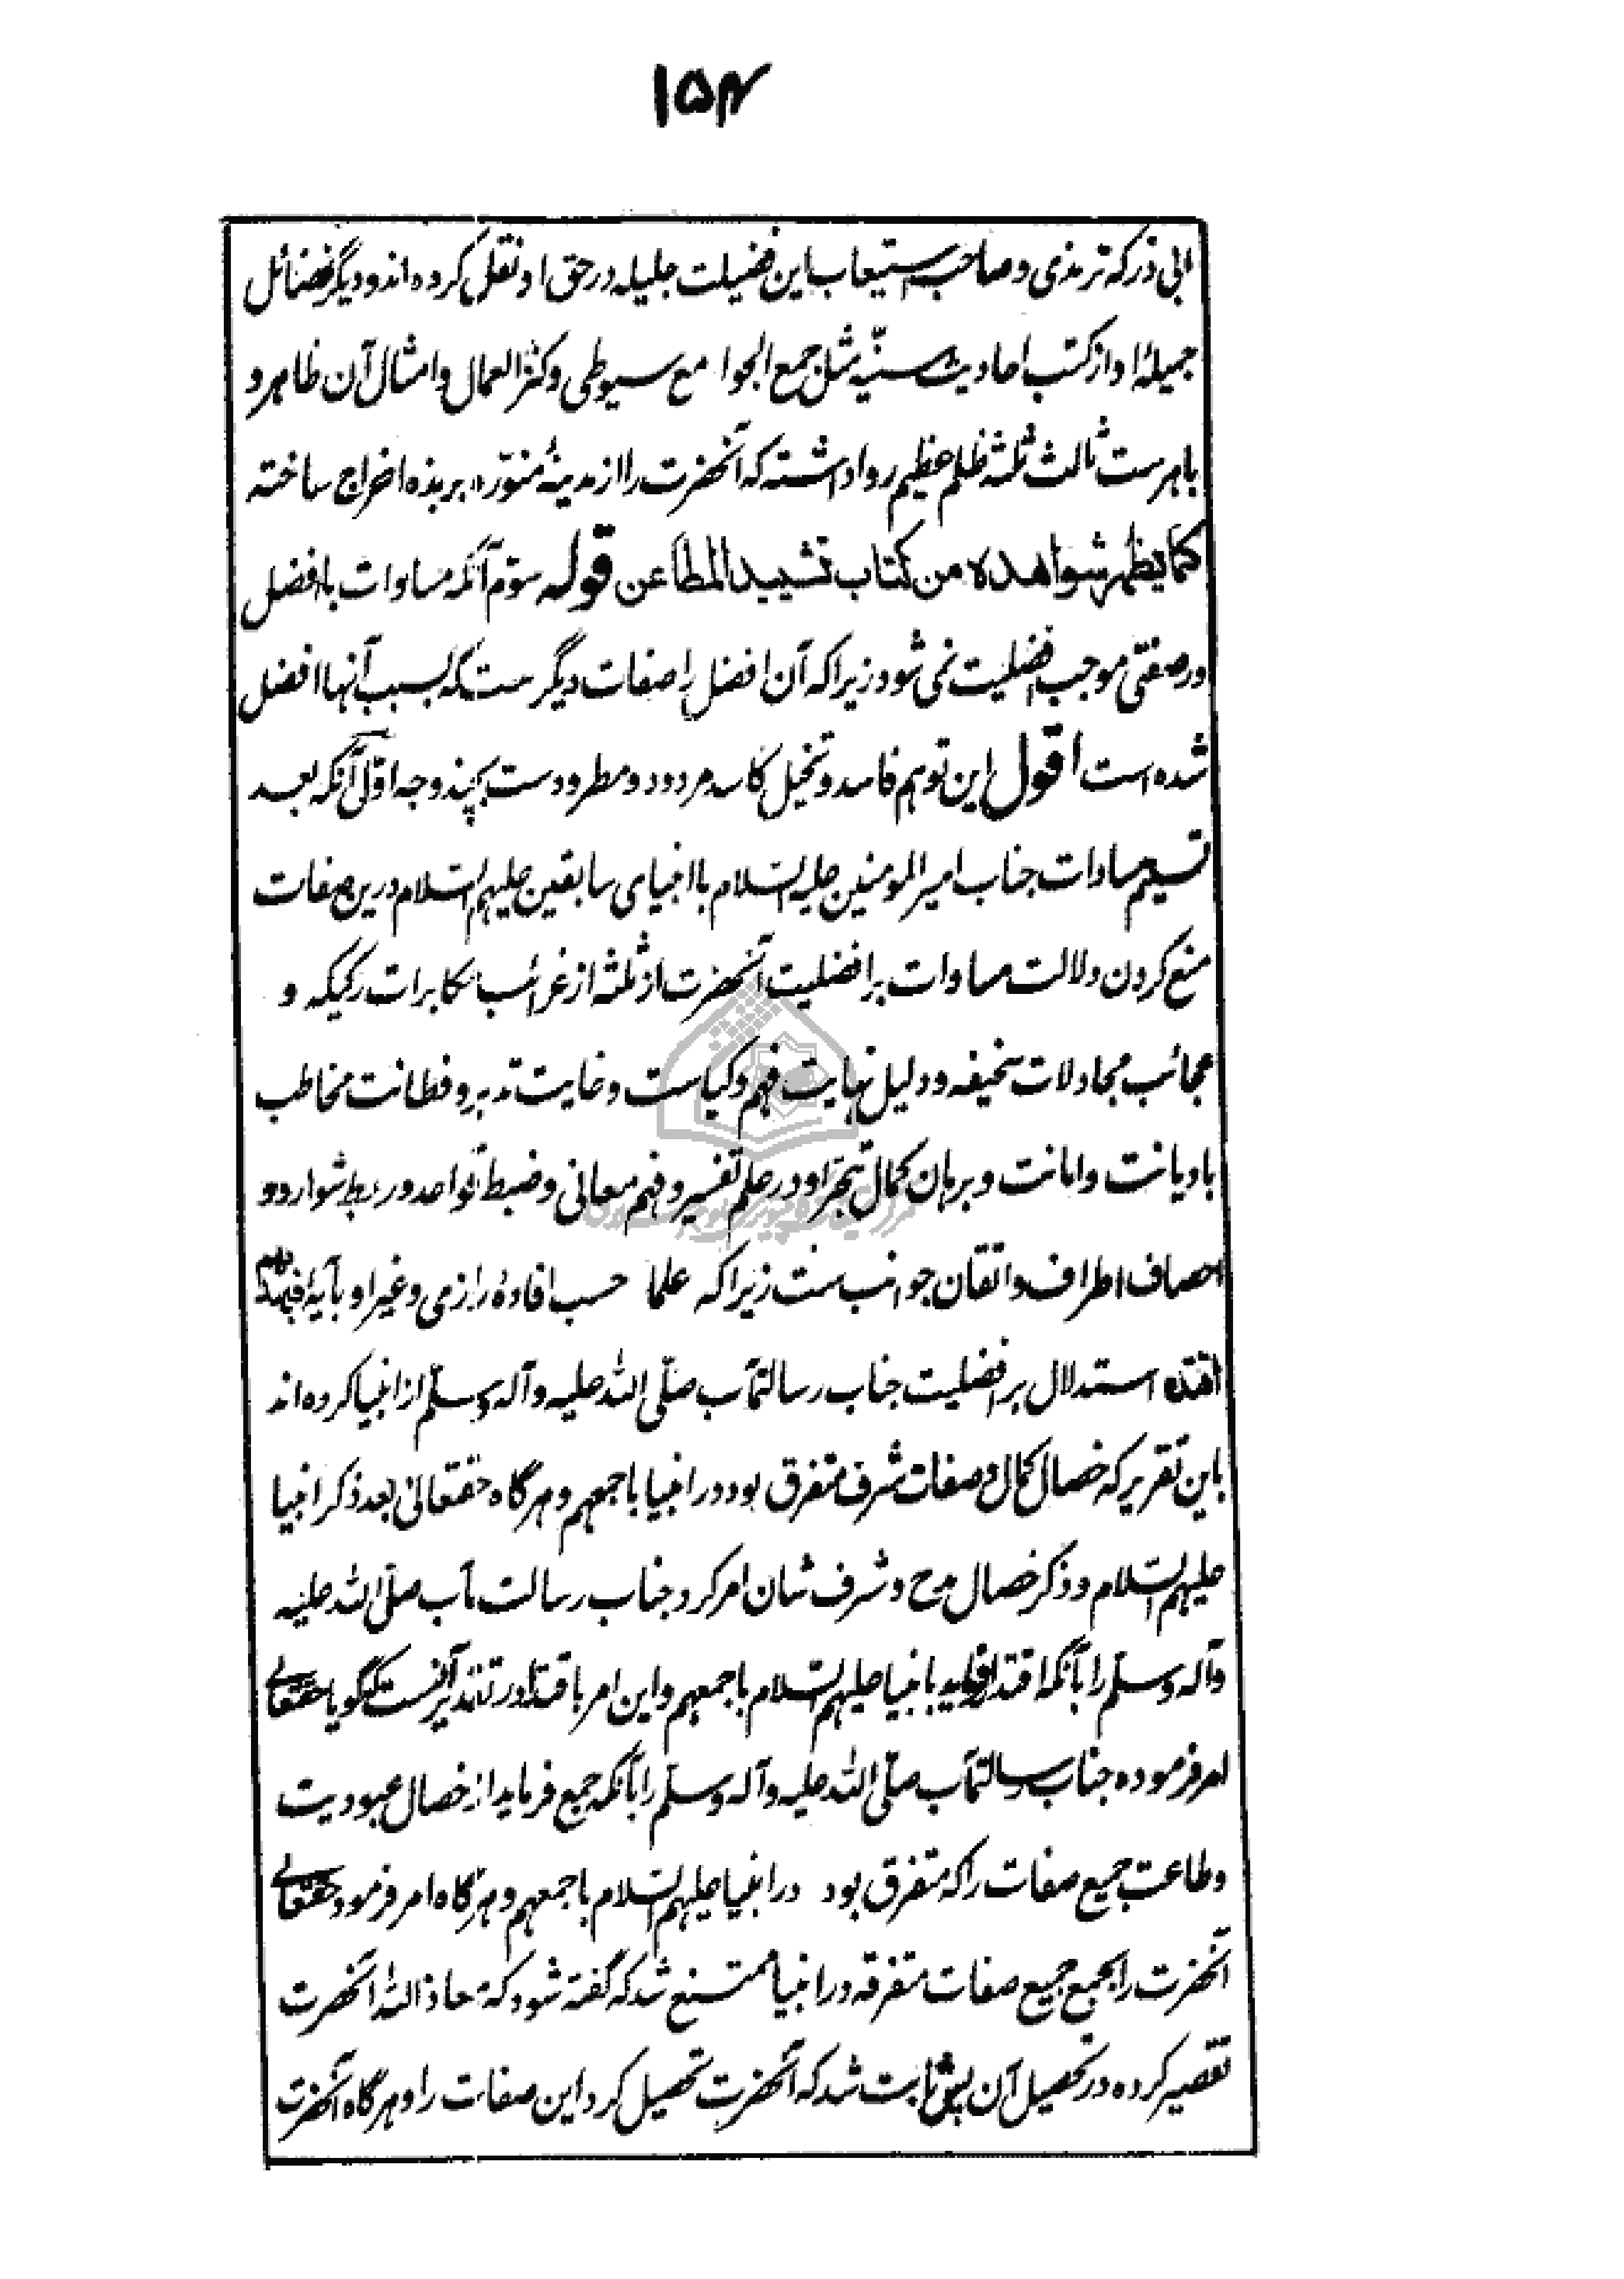 ۱۵۴
ابی ذر که ترمذی و صاحب استیعاب این فضیلت جلیله در حق او نقل کرده اند و دیگر فضائل
جمیلهٔ او از کتب احادیث سنیّه مثل جمع الجوامع سیوطی و کنز العمال و امثال آن ظاهر و
باهرست ثالث ثلثه ظلم عظیم روا داشته که آنحضرت را از مدینهٔ منوّره بربذه اخراج ساخته
کما یظهر شواهده من کتاب تشیید المطاعن قوله سوّم آنکه مساوات با افضل
در صفتی موجب افضلیت نمی شود زیرا که آن افضل را صفات دیگرست که بسبب آنها افضل
شده است اقول این توهم فاسد و تخیل کاسد مردود و مطرودست بچند وجه اوّل آنکه بعد
تسلیم مساوات جناب امیر المومنین علیه السّلام با انبیای سابقین علیهم السّلام درین صفات
منع کردن دلالت مساوات بر افضلیت آنحضرت از ثلثه از غرائب مکابرات رکیکه و
عجائب مجادلات سخیفه و دلیل نهایت فهم و کیاست و غایت تدبر و فطانت مخاطب
با دیانت و امانت و برهان کمال تبحّر او در علم تفسیر و فهم معانی و ضبط قواعد و ربط شوارد و
احصاف اطراف و اتقان جوانب ست زیرا که علما حسب افادهٔ رازی و غیر او بآیهٔ فبهدیهم
اقتده استدلال بر افضلیت جناب رسالتمآب صلّی الله علیه و آله و سلّم از انبیا کرده اند
باین تقریر که خصال کمال و صفات شرف متفرق بود در انبیا باجمعهم و هر گاه حقتعالیٰ بعد ذکر انبیا
علیهم السّلام و ذکر خصال مدح و شرف شان امر کرد جناب رسالت مآب صلّی الله علیه
و آله و سلّم را بآنکه اقتدا فرماید بانبیا علیهم السّلام باجمعهم و این امر باقتدا در تقدیر آنست که گویا حقتعالے
امر فرموده جناب رسالتمآب صلّی الله علیه و آله و سلّم را بآنکه جمع فرماید از خصال عبودیت
و طاعت جمیع صفات را که متفرق بود در انبیا علیهم السّلام باجمعهم و هر گاه امر فرمود حقتعالے
آنحضرت را بجمع جمیع صفات متفرقه در انبیا ممتنع شد که گفته شود که معاذ الله آنحضرت
تقصیر کرده در تحصیل آن پس ثابت شد که آنحضرت تحصیل کرد این صفات را و هر گاه آنحضرت